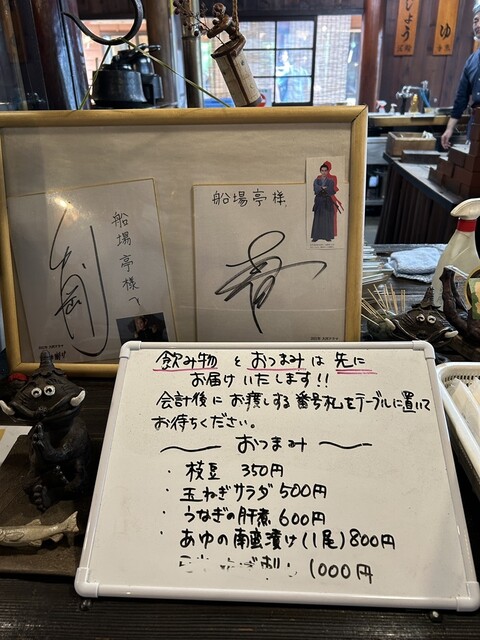 船場亭様へ
船場亭様
飲み物とおつまみは先に
お届けいたします!!
会計後にお渡しする番号札をテーブルに置いて
お待ちください。
〜おつまみ〜
・枝豆 350円
・玉ねぎサラダ 500円
・うなぎの肝煮 600円
・あゆの南蛮漬け(1尾)800円
1000円